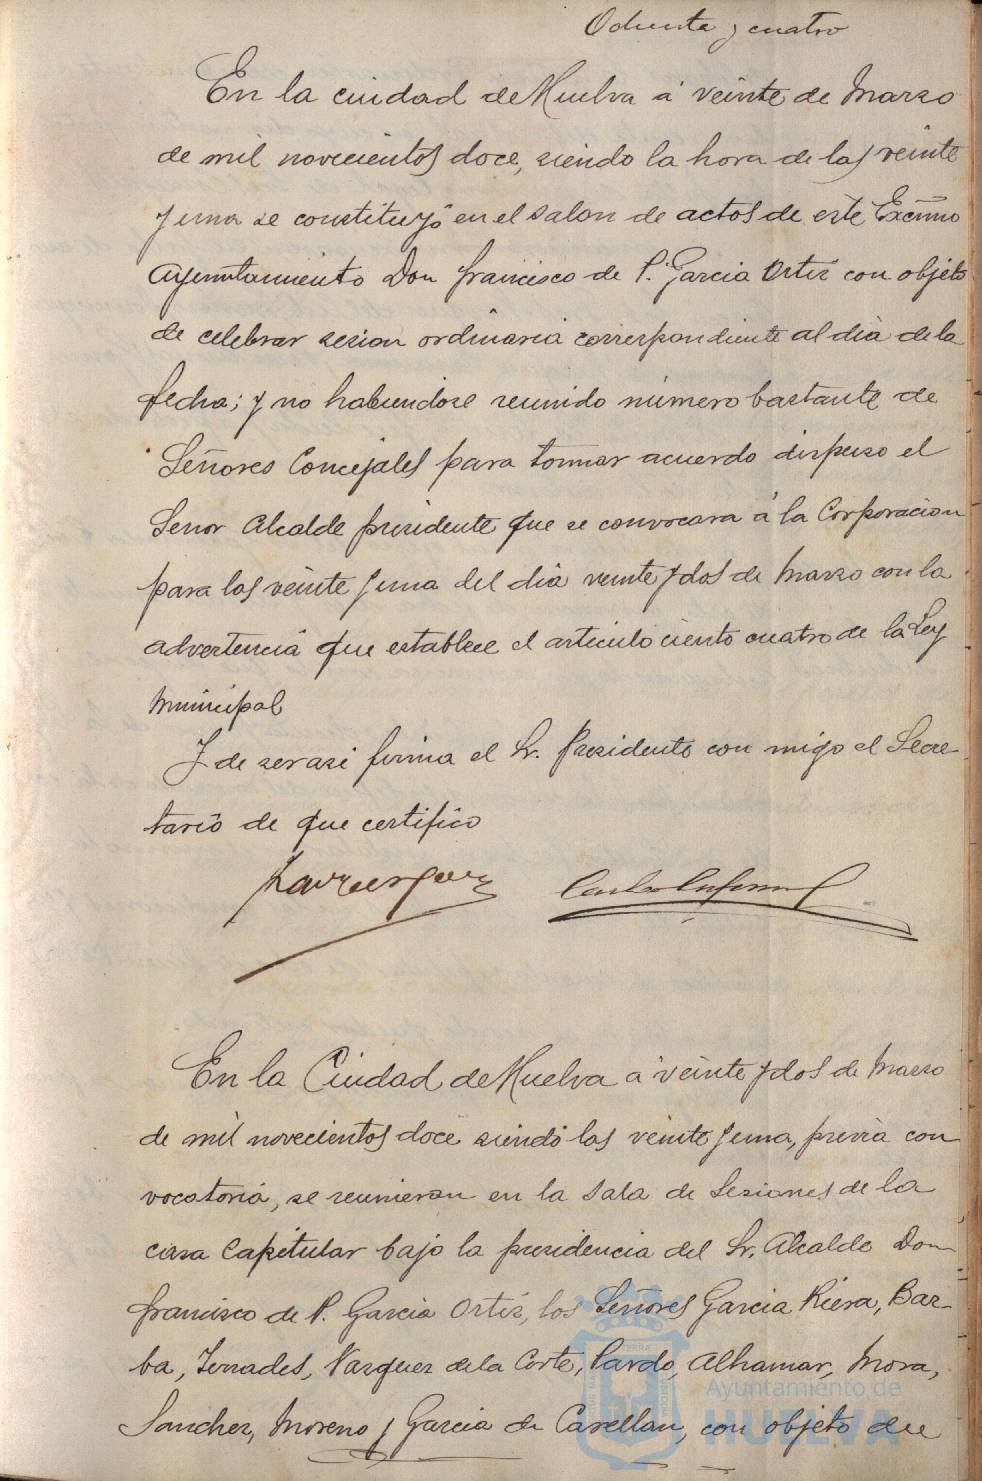 Ochenta y cuatro
En la ciudad de Huelva á veinte de Marzo
de mil novecientos doce, siendo la hora de las veinte
y una se constituyó en el salon de actos de este Excmo
Ayuntamiento Don francisco de P. Garcia Ortiz con objeto
de celebrar sesion ordinaria correspondiente al dia de la
fecha; y no habiendose reunido número bastante de
Señores Concejales para tomar acuerdo dispuso el
Señor Alcalde presidente que se convocara á la Corporacion
para las veinte y una del dia veinte y dos de Marzo con la
advertencia que establece el articulo ciento cuatro de la Ley
Municipal
Y de ser asi firma el Sr. Presidente con migo el Secre-
tario de que certifico
En la Ciudad de Huelva á veinte y dos de Marzo
de mil novecientos doce siendo las veinte y una, previa con
vocatoria, se reunieron en la Sala de Sesiones de la
casa Capitular bajo la presidencia del Sr. Alcalde Don
francisco de P. Garcia Ortiz, los Señores Garcia Riera, Bar-
ba, Terrades, Vazquez de la Corte, Pardo, Alhamar, Mora,
Sanchez, Moreno y Garcia de Casellan, con objeto de
Ayuntamiento de
HUELVA